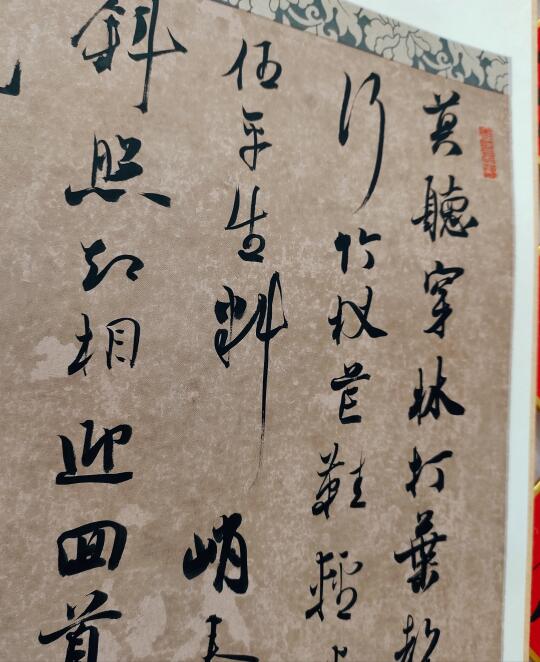 莫聽穿林打葉
行竹杖芒鞋輕
任平生料峭
斜照却相迎回首